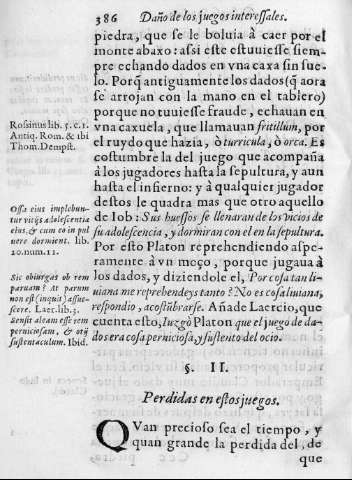 386 Daño de los juegos interessales.
piedra, que se le boluia à caer por el
monte abaxo: assi este estuuiesse siem-
pre echando dados en vna caxa sin sue-
lo. Porq̃ antiguamente los dados (q̃ aora
se arrojan con la mano en el tablero)
porque no tuuiesse fraude, echauan en
vna caxuela, que llamauan fritillum, por
el ruydo que hazia, ò turricula, ò orca. Es
costumbre la del juego que acompaña
à los jugadores hasta la sepultura, y aun
hasta el infierno: y à qualquier jugador
destos le quadra mas que otro aquello
de Iob: Sus huessos se llenaran de los vicios de
su adolescencia, y dormiran con el en la sepultura.
Por esto Platon reprehendiendo aspe-
ramente à vn moço, porque jugaua à
los dados, y diziendole el, Por cosa tan li-
uiana me reprehendeys tanto? No es cosa liuiana,
respondio, acostũbrarse. Añade Laercio, que
cuenta esto, Iuzgò Platon que el juego de da-
dos era cosa perniciosa, y sustento del ocio.
Rosinus lib. 5. c. 1.
Antiq. Rom. & ibi
Thom. Dempst.
Ossa eius implebun-
tur vitijs adolescentia
eius, & cum eo in pul
uere dormient. lib.
20. num. 11.
Sic obiurgas ob rem
paruam? At parum
non est (inquit) assue-
scere. Laer. lib. 3.
Sensit aleam esse rem
perniciosam, & otij
sustentaculum. Ibid.
§. II.
Perdidas en estos juegos.
QVan precioso sea el tiempo, y
quan grande la perdida del, de
que